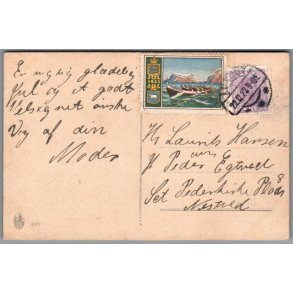 En rigtig glædelig
Jul og et godt
velsignet ønske
Dig af din
Moder
Hr Laurits Hansen
Peder Egtved
Sct Pederskirke Plads
Næstved